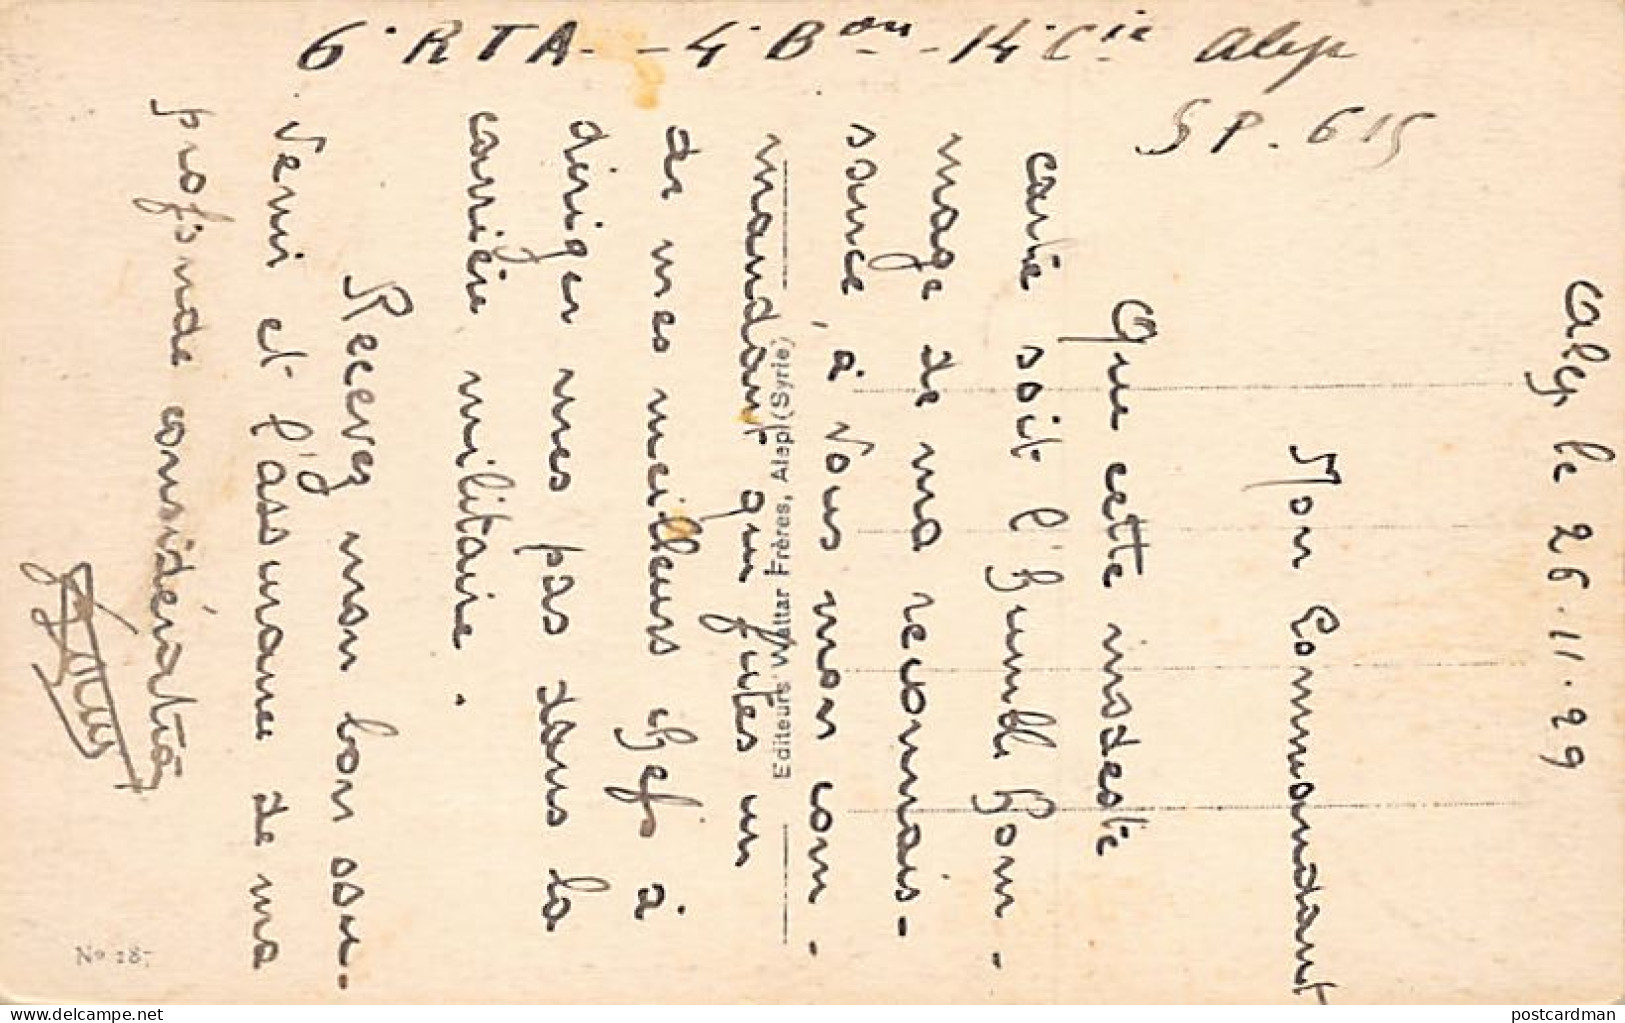 6e RTA - 4e Bon - 14e Cie Alep
SP. 615
Alep le 26.11.29
Mon Commandant
Que cette modeste
carte soit l'humble hom-
mage de ma reconnais-
sance, à vous mon com-
mandant qui fûtes un
de mes meilleurs chefs à
diriger mes pas dans la
carrière militaire.
Recevez mon bon sou-
venir et l'assurance de ma
profonde considération
Editeurs Wattar Frères, Alep (Syrie)
No 187
postcardman